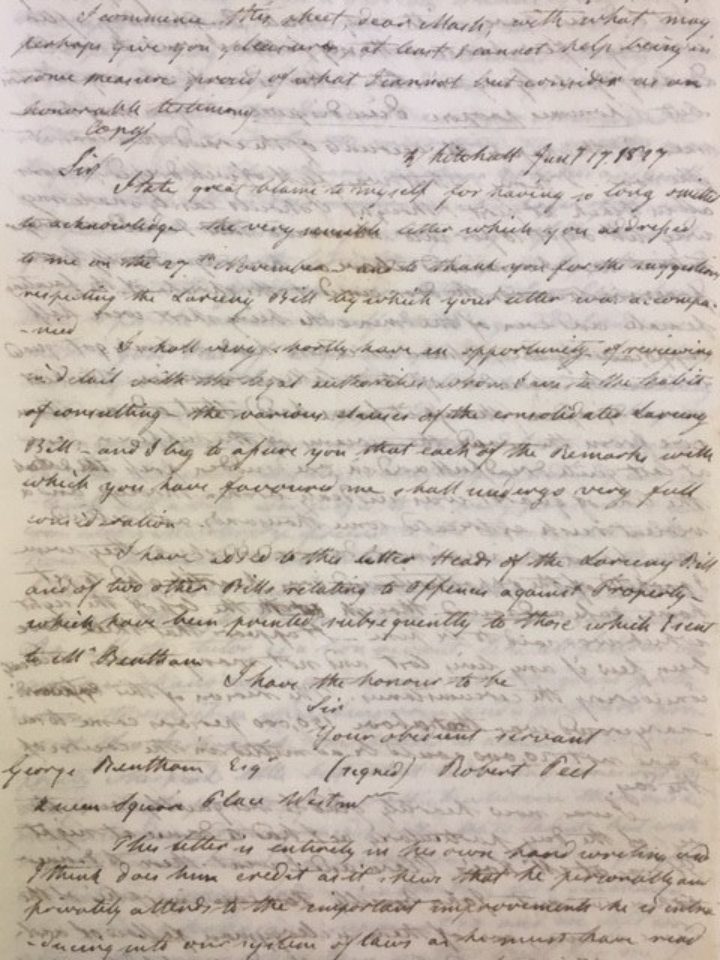 I commence this sheet, dear Mash, with what may
perhaps give you pleasure at least I cannot help being in
some measure proud of what I cannot but consider as an
honorable testimony
Copy
Whitehall Jany 17. 1827
Sir
I take great blame to myself for having so long omitted
to acknowledge the very sensible letter which you addressed
to me on the 27th November – and to thank you for the suggestions
respecting the Larceny Bill by which your letter was accompa-
-nied
I shall very shortly have an opportunity of reviewing
in detail with the legal authorities whom I am in the habit
of consulting – the various clauses of the consolidated Larceny
Bill – and I beg to assure you that each of the Remarks with
which you have favoured me shall undergo very full
consideration.
I have added to this letter Heads of the Larceny Bill
and of two other Bills relating to Offences against Property –
which have been printed subsequently to those which I sent
to Mr Bentham
I have the honour to be
Sir
Your obedient servant
George Bentham Esqr (signed) Robert Peel
Queen Square Place Westmr
This letter is entirely in his own hand writing and
I think does him credit as it shews that he personally and
privately attends to the important improvements he is intro
-ducing into our system of laws as he must have read